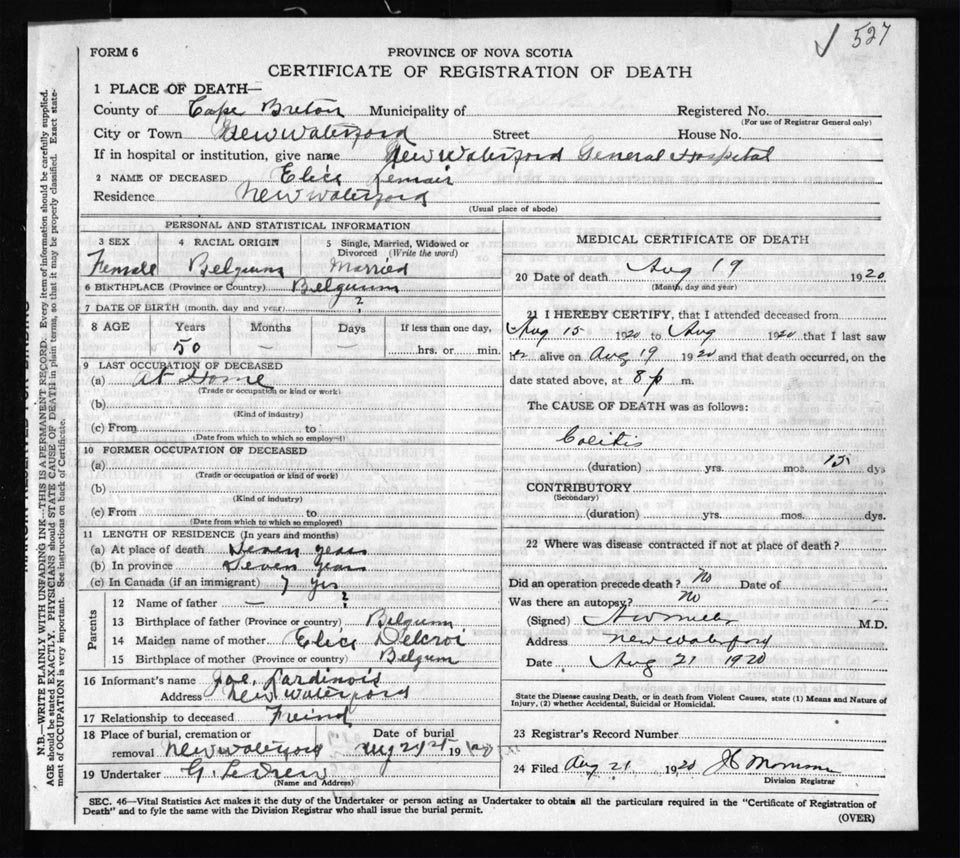 ✓ 527
FORM 6
PROVINCE OF NOVA SCOTIA
CERTIFICATE OF REGISTRATION OF DEATH
1 PLACE OF DEATH—
County of Cape Breton Municipality of Registered No.
(For use of Registrar General only)
City or Town New Waterford Street House No.
If in hospital or institution, give name New Waterford General Hospital
2 NAME OF DECEASED Elice Lemair
Residence New Waterford
(Usual place of abode)
PERSONAL AND STATISTICAL INFORMATION
3 SEX 4 RACIAL ORIGIN 5 Single, Married, Widowed or Divorced (Write the word)
Female Belgium Married
6 BIRTHPLACE (Province or Country) Belguum
7 DATE OF BIRTH (month, day and year) ?
8 AGE Years Months Days If less than one day,
50 — — hrs. or min.
9 LAST OCCUPATION OF DECEASED
(a) At Home
(Trade or occupation or kind or work)
(b)
(Kind of industry)
(c) From to
(Date from which to which so employed)
10 FORMER OCCUPATION OF DECEASED
(a)
(Trade or occupation or kind of work)
(b)
(Kind of industry)
(c) From to
(Date from which to which so employed)
11 LENGTH OF RESIDENCE (In years and months)
(a) At place of death Seven years
(b) In province Seven years
(c) In Canada (if an immigrant) 7 yrs
Parents
12 Name of father — ?
13 Birthplace of father (Province or country) Belgum
14 Maiden name of mother Elice Delcroi
15 Birthplace of mother (Province or country) Belgum
16 Informant's name Joe. Lardinois
Address New Waterford
17 Relationship to deceased Freind
18 Place of burial, cremation or removal New Waterford Date of burial Aug 21st 1920
19 Undertaker G. LeDrew
(Name and Address)
MEDICAL CERTIFICATE OF DEATH
20 Date of death Aug 19 1920
(Month, day and year)
21 I HEREBY CERTIFY, that I attended deceased from
Aug 15 1920 to Aug 1920 that I last saw
her alive on Aug 19 1920 and that death occurred, on the
date stated above, at 8 p m.
The CAUSE OF DEATH was as follows:
Colitis
(duration) yrs. mos. 15 dys
CONTRIBUTORY
(Secondary)
(duration) yrs. mos. dys.
22 Where was disease contracted if not at place of death?
Did an operation precede death? No Date of
Was there an autopsy? No
(Signed) M.D.
Address New Waterford
Date Aug 21 1920
State the Disease causing Death, or in death from Violent Causes, state (1) Means and Nature of
Injury, (2) whether Accidental, Suicidal or Homicidal.
23 Registrar's Record Number
24 Filed Aug 21 1920
Division Registrar
SEC. 46—Vital Statistics Act makes it the duty of the Undertaker or person acting as Undertaker to obtain all the particulars required in the "Certificate of Registration of
Death" and to fyle the same with the Division Registrar who shall issue the burial permit.
(OVER)
N.B.—WRITE PLAINLY WITH UNFADING INK—THIS IS A PERMANENT RECORD. Every item of information should be carefully supplied.
AGE should be stated EXACTLY. PHYSICIANS should STATE CAUSE OF DEATH in plain terms, so that it may be properly classified. Exact state-
ment of OCCUPATION is very important. See instructions on back of Certificate.